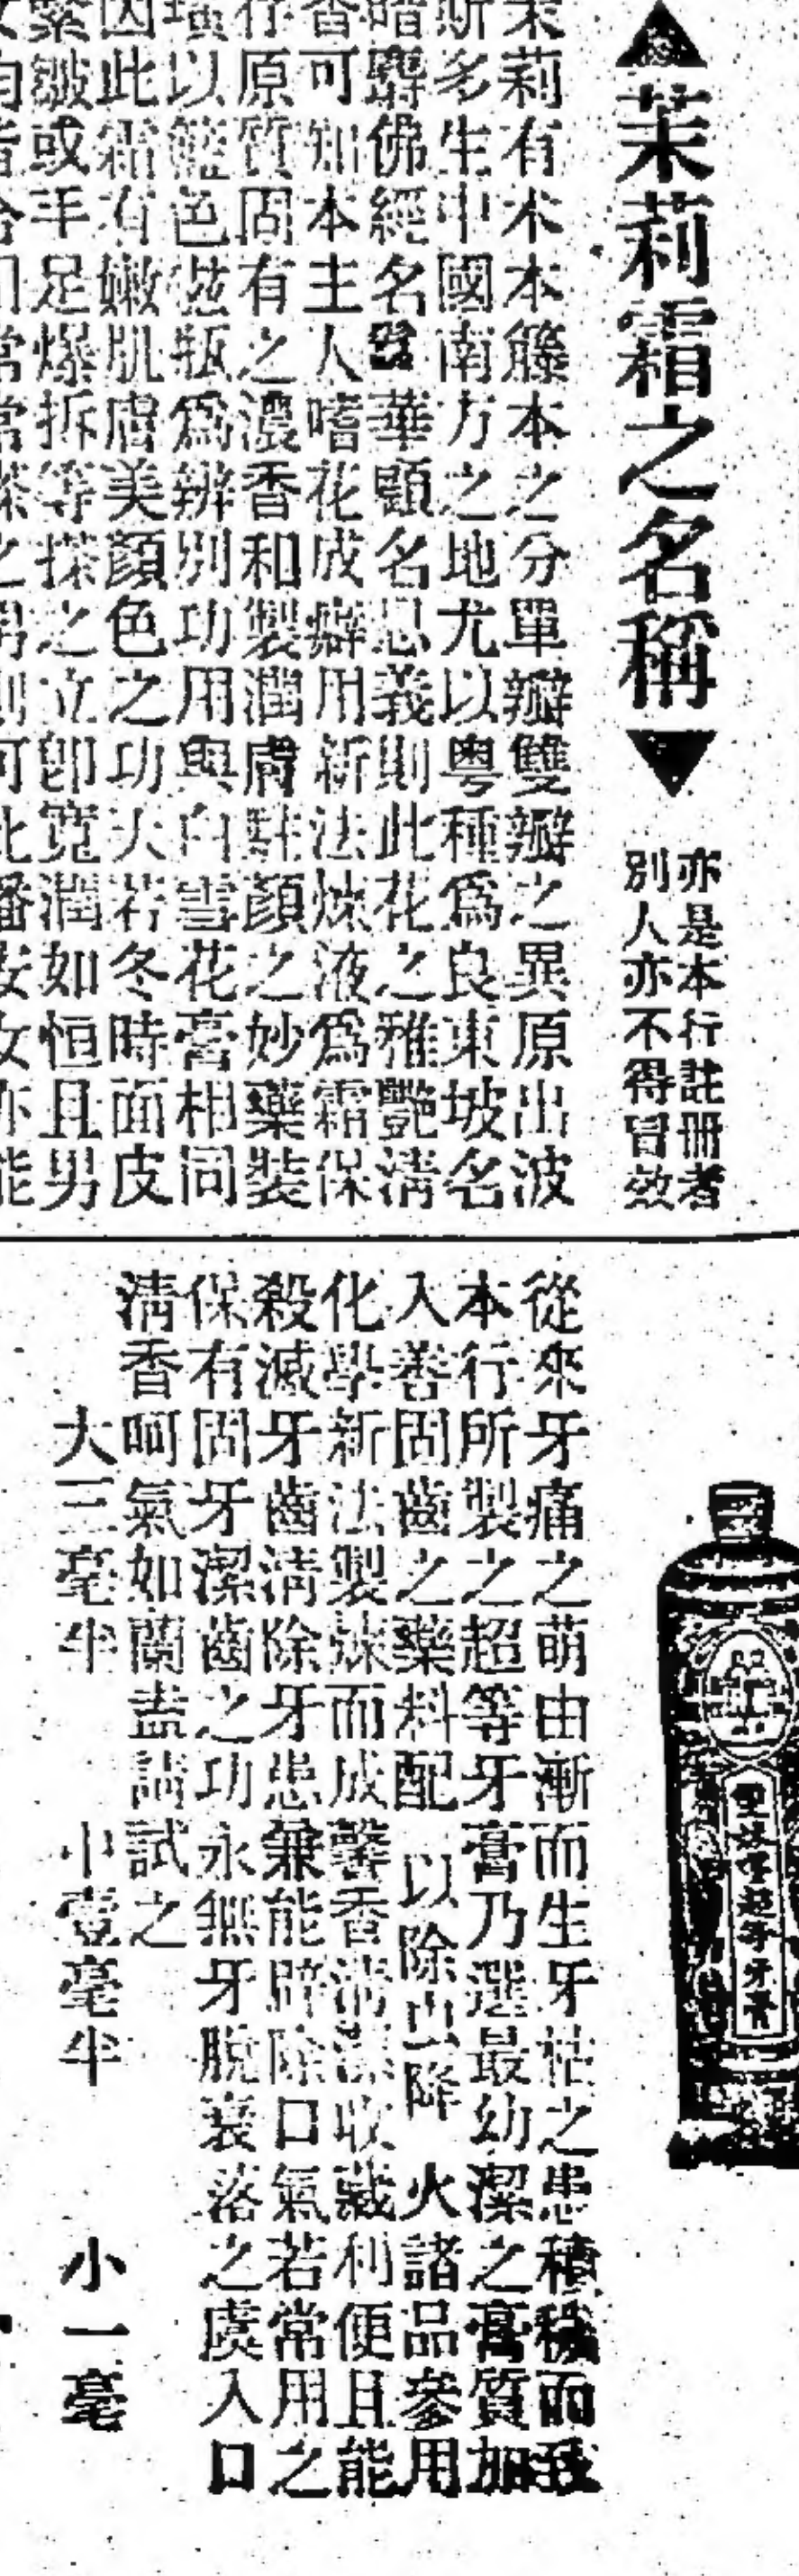 茉莉霜之名稱
亦是本行註冊者
別人亦不得冒效
茉莉有木本籐本之分單瓣雙瓣之異原出波
斯多生中國南方之地尤以粵種爲良東坡名
暗麝佛經名鬘華顧名思義則此花之雅艷淸
香可知本主人嗜花成癖用新法煉液爲霜保
存原質固有之濃香和製潤膚駐顏之妙藥裝
璜以籃色磁瓶爲辨別功用與白雪花膏相同
因此霜有嫩肌膚美顏色之功大若冬時面皮
緊皺或手足爆拆等搽之立卽寬潤如恒且男
從來牙痛之萌由漸而生牙枯之患積穢而致
本行所製之超等牙膏乃選最幼潔之膏質加
入善固齒之藥料配以除虫降火諸品參用
化學新法製煉而成馨香淸潔收藏利便且能
殺滅牙齒淸除牙患兼能辟除口氣若常用之
保有固牙潔齒之功永無牙脫衰落之虞入口
淸香呵氣如蘭盍請試之
大三毫半 小壹毫半 小一毫
雙妹嚜超等牙膏